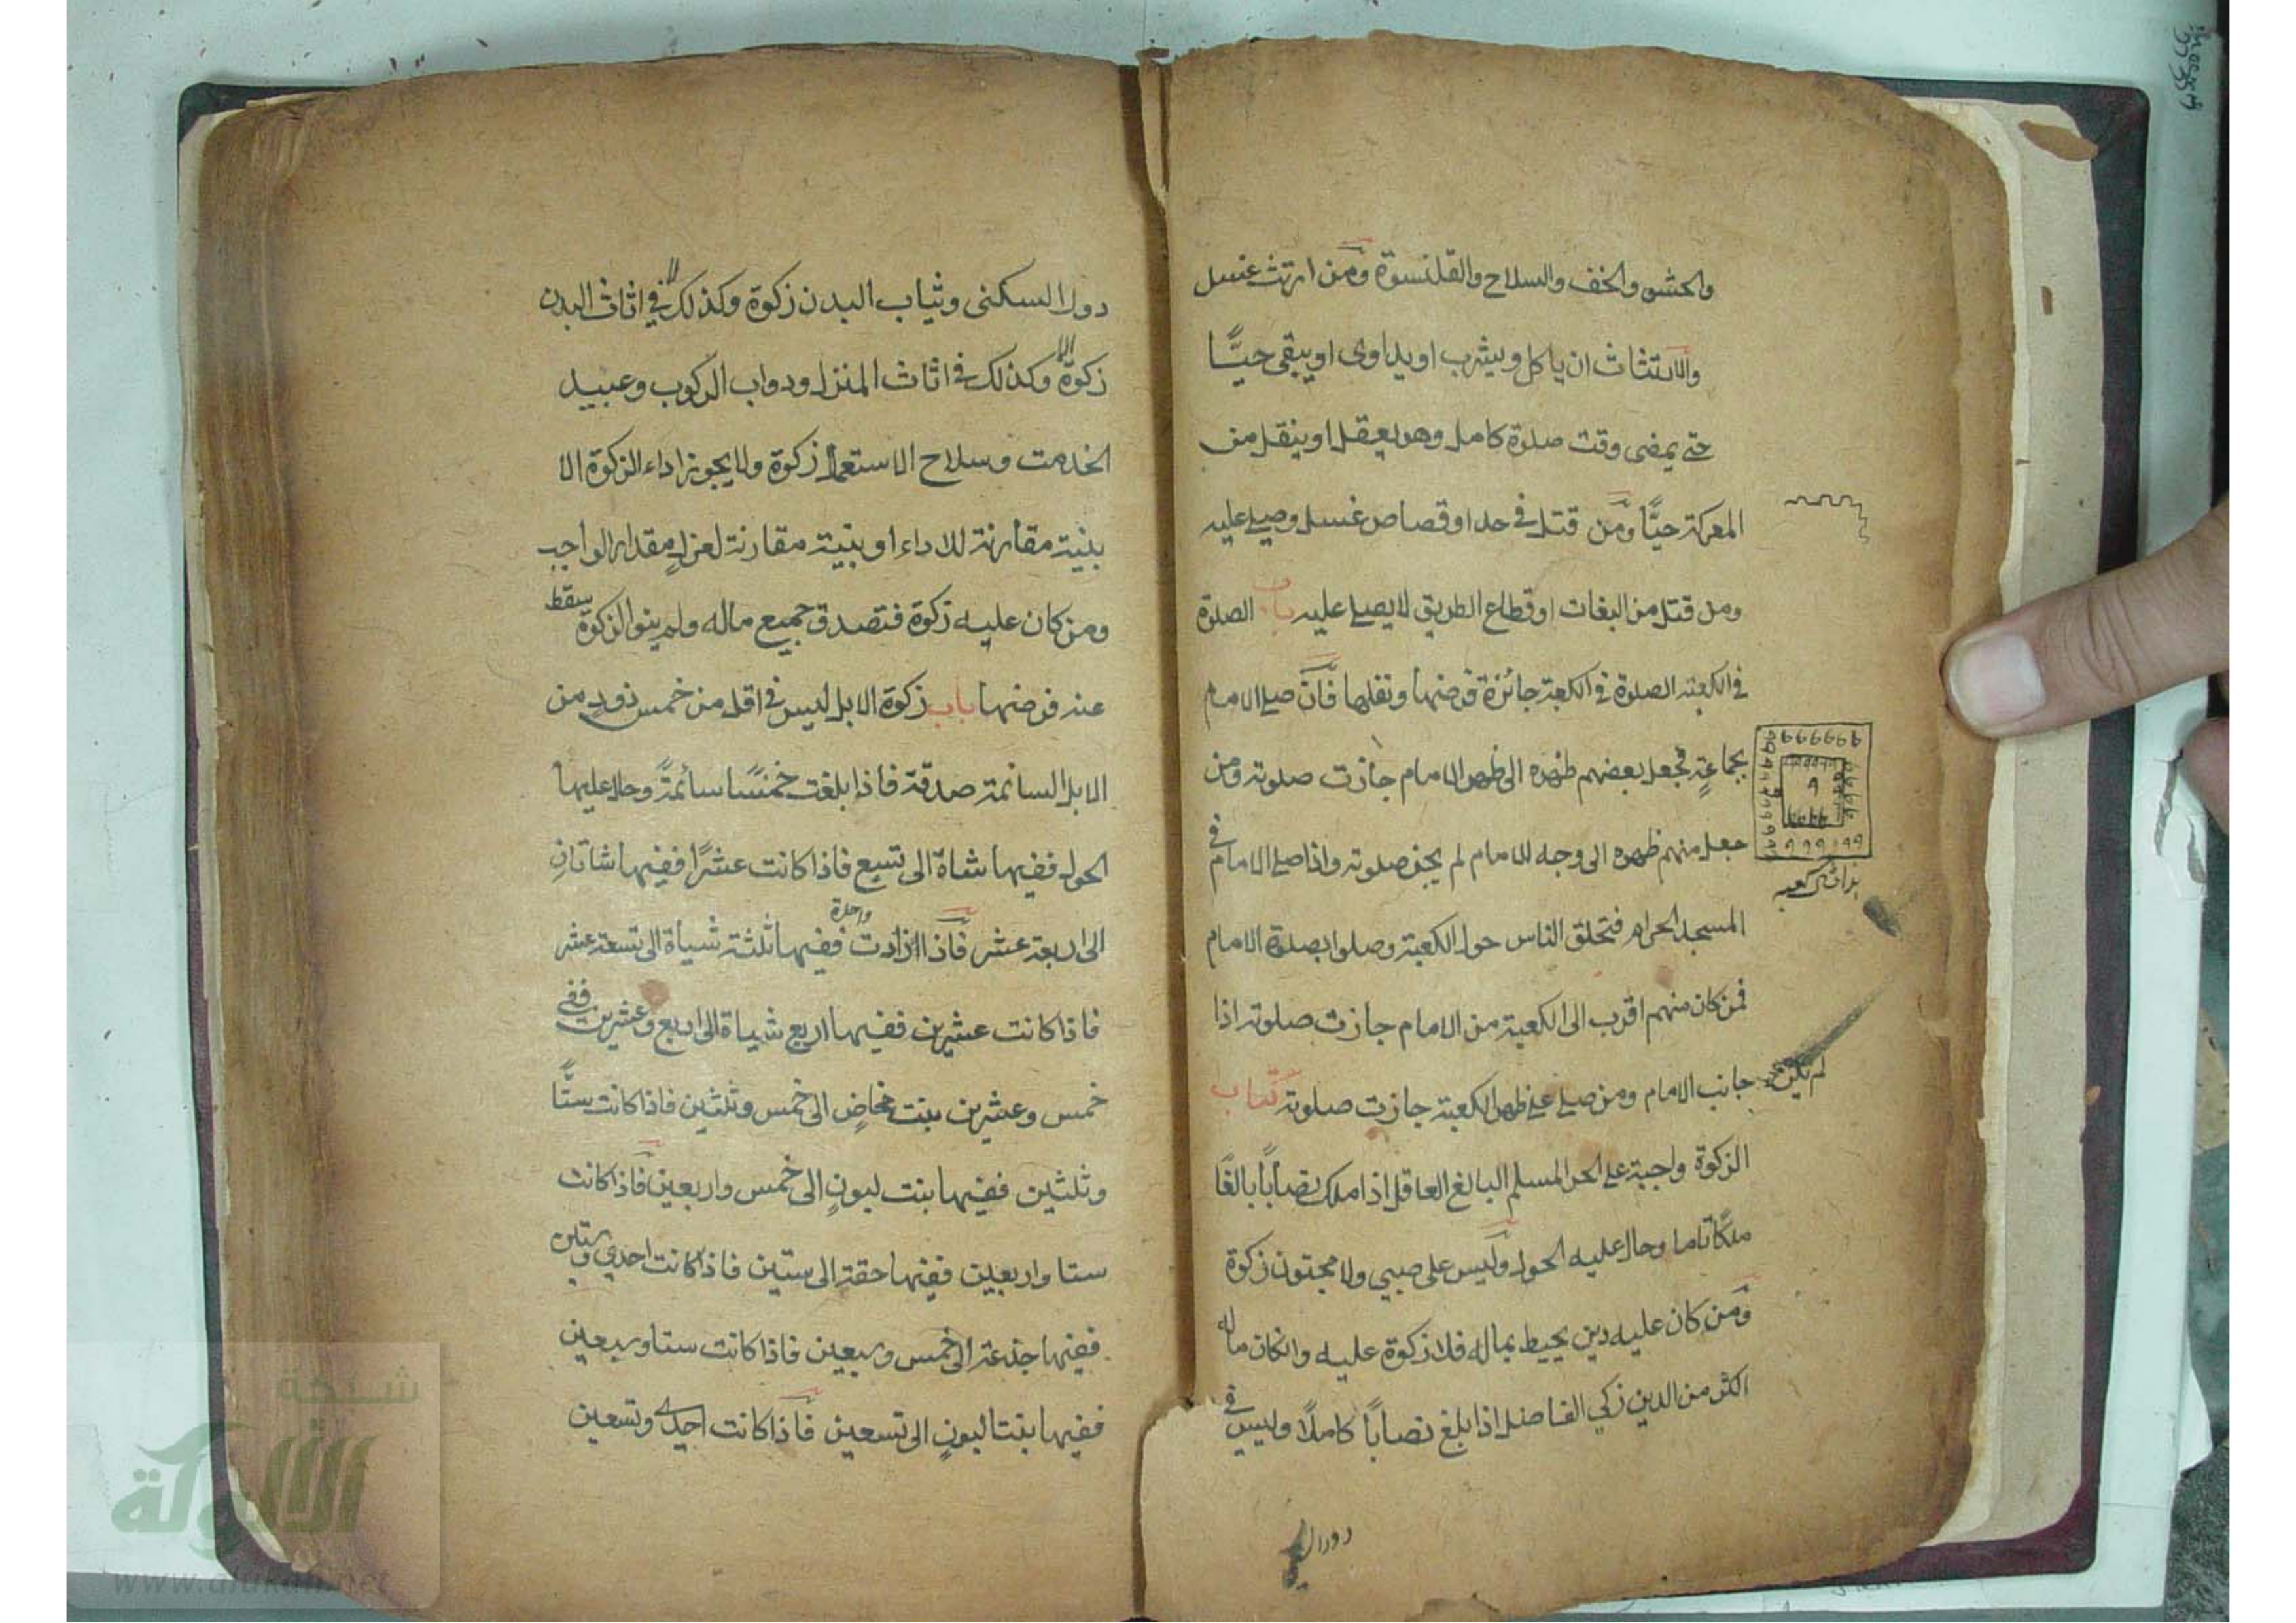 والحشو والخف والسلاح والقلنسوة ومن ارتث غسل
والارتثاث ان ياكل ويشرب او يداوى او يبقى حيًّا
حتى يمضى وقت صلوة كامل وهو يعقل او ينقل من
المعركة حيًّا ومن قتل فى حد او قصاص غسل وصلى عليه
ومن قتل من البغات او قطاع الطريق لا يصلى عليه باب الصلوة
فى الكعبة الصلوة فى الكعبة جائزة فرضها ونفلها فان صلى الامام
بجماعةٍ فجعل بعضهم ظهره الى ظهر الامام جازت صلوته ومن
جعل منهم ظهره الى وجه الامام لم يجز صلوته واذا صلى الامام فى
المسجد الحرام فتحلق الناس حول الكعبة وصلوا بصلوة الامام
فمن كان منهم اقرب الى الكعبة من الامام جازت صلوته اذا
لم يكن فى جانب الامام ومن صلى على ظهر الكعبة جازت صلوته كتاب
الزكوة واجبة على الحر المسلم البالغ العاقل اذا ملك نصابًا بالغًا
ملكًا تاما وحال عليه الحول وليس على صبي ولا مجنون زكوة
ومن كان عليه دين يحيط بماله فلا زكوة عليه وانكان ماله
اكثر من الدين زكي الفاضل اذا بلغ نصابًا كاملًا وليس فى
دورال
دور السكنى وثياب البدن زكوة وكذلك فى اثاث البدن
زكوة وكذلك فى اثاث المنزل ودواب الركوب وعبيد
الخدمت وسلاح الاستعمال زكوة ولا يجوز اداء الزكوة الا
بنية مقارنة للاداء او بنية مقارنة لعزل مقدار الواجب
ومن كان عليه زكوة فتصدق جميع ماله ولم ينو الزكوة سقط
عنه فرضها باب زكوة الابل ليس فى اقل من خمس ذودٍ من
الابل السائمة صدقة فاذا بلغت خمسًا سائمةً وحال عليها
الحول ففيها شاة الى تسع فاذا كانت عشرًا ففيها شاتان
الى اربعة عشر فاذا ازادت واحدة ففيها ثلثة شياة الى تسعة عشر
فاذا كانت عشرين ففيها اربع شياة الى اربع وعشرين ففى
خمس وعشرين بنت مخاضٍ الى خمس وثلثين فاذا كانت ستًّا
وثلثين ففيها بنت لبونٍ الى خمس واربعين فاذا كانت
ستا واربعين ففيها حقة الى ستين فاذا كانت احدي وستين
ففيها جذعة الى خمس وسبعين فاذا كانت ستا وسبعين
ففيها بنتا لبونٍ الى تسعين فاذا كانت احدى وتسعين
شبكة
الألوكة
www.alukah.net